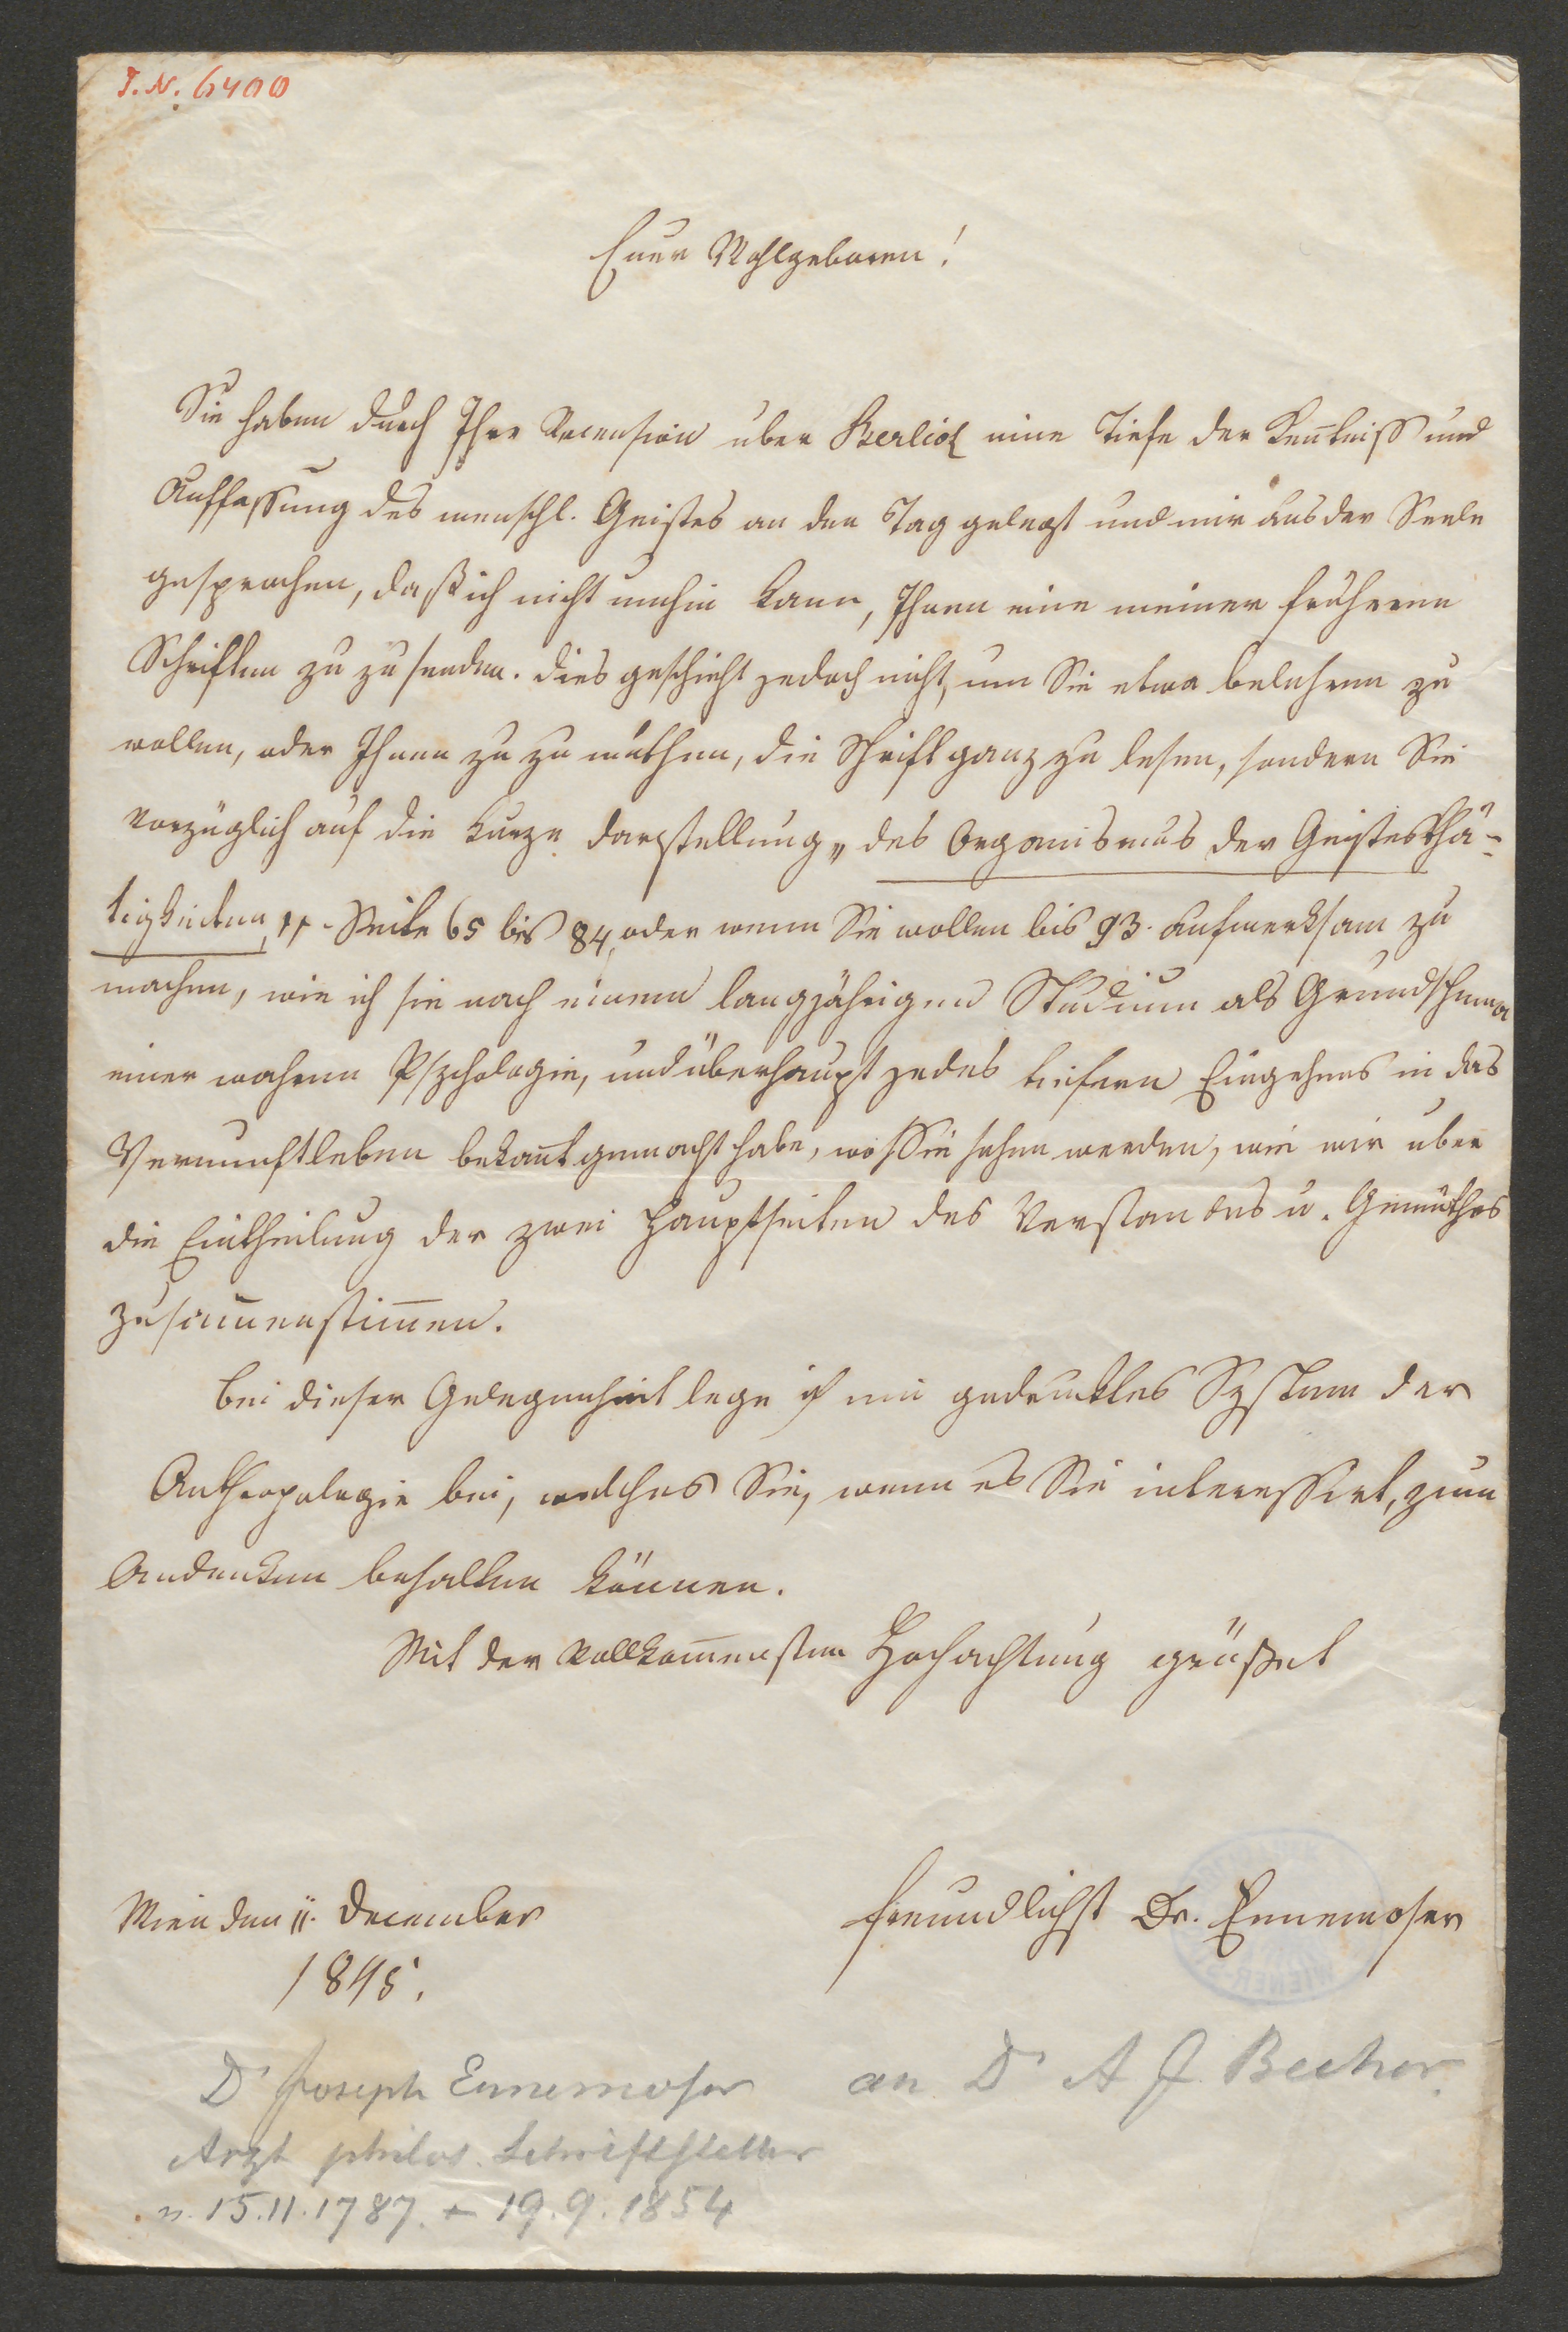 I.N. 6400
Euer Wohlgeboren!
Sie haben durch Ihre Recension über Berlioz eine Tiefe der Kenntniß und
Auffassung des menschl. Geistes an den Tag gelegt und mir aus der Seele
gesprochen, daß ich nicht umhin kann, Ihnen eine meiner früheren
Schriften zu zu senden. Dies geschieht jedoch nicht, um Sie etwa belehren zu
wollen, oder Ihnen zu zu muthen, die Schrift ganz zu lesen, sondern Sie
vorzüglich auf die kurze Darstellung „des Organismus der Geistesthä-
tigkeiten" - Seite 65 bis 84, oder wenn Sie wollen bis 93. aufmerksam zu
machen, wie ich sie nach einem langjährigen Studium als Grundschema
einer wahren Psychologie, und überhaupt jedes tiefern Eingehens in das
Vernunftleben bekannt gemacht habe, wo Sie sehen werden, wie wir über
die Eintheilung der zwei Hauptseiten des Verstandes u. Gemüthes
zusammenstimmen.
Bei dieser Gelegenheit lege ich ein gedrucktes System der
Anthropologie bei, welches Sie, wenn es Sie interessirt, zum
Andenken behalten können.
Mit der vollkommensten Hochachtung grüßet
Wien den 11. December
1845.
freundlichst Dr. Ennemoser
Dr Joseph Ennemoser
an Dr A J Becher.
Arzt philos. Schriftsteller
n. 15.11.1787. + 19.9.1854